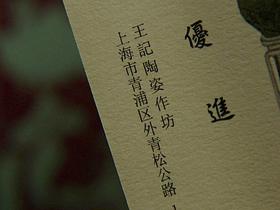 優進
王記陶姿作坊
上海市青浦区外青松公路